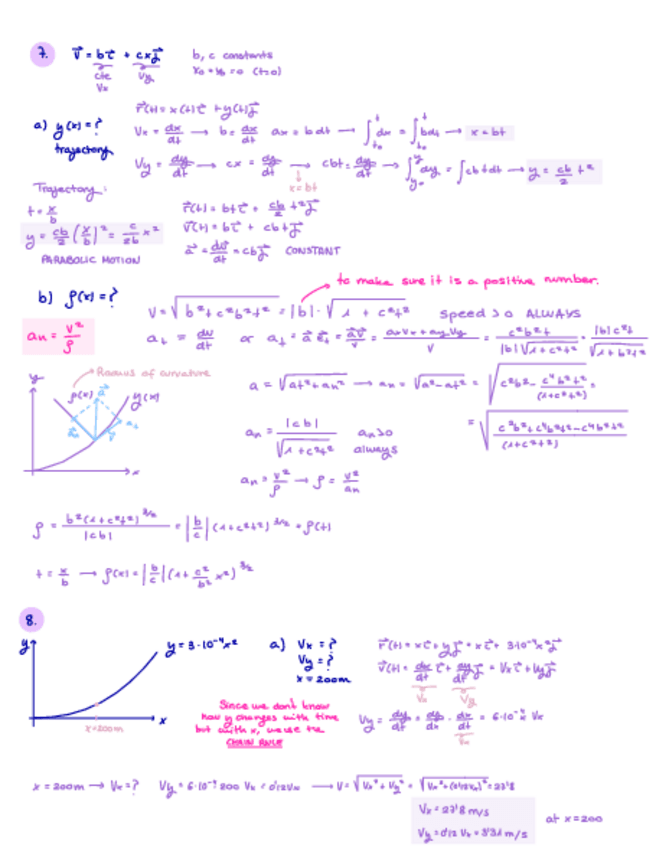 7. v⃗ = b i⃗ + cx j⃗ b, c constants
cte Vy x₀ = y₀ = 0 (t=0)
Vx
r⃗(t) = x(t) i⃗ + y(t) j⃗
a) y(x) = ? Vx = dx/dt → b = dx/dt dx = b dt → ∫dx = ∫b dt → x = bt
trajectory
Vy = dy/dt → cx = dy/dt → cbt = dy/dt → ∫dy = ∫cbt dt → y = cb/2 t²
x = bt
Trajectory:
t = x/b r⃗(t) = bt i⃗ + cb/2 t² j⃗
y = cb/2 (x/b)² = c/2b x² v⃗(t) = b i⃗ + cbt j⃗
a⃗ = dv⃗/dt = cb j⃗ CONSTANT
PARABOLIC MOTION
to make sure it is a positive number.
b) ρ(x) = ? V = √(b² + c²b²t²) = |b| · √(1 + c²t²) speed > 0 ALWAYS
an = v²/ρ at = dv/dt or at = a⃗ · e⃗t = a⃗v⃗/v = (axVx + ayVy)/V = c²b²t/(|b|√(1+c²t²)) = |b|c²t/√(1+b²t²)
Radius of curvature
y ρ(x) a⃗ y(x) a⃗n v⃗ at x
a = √(at² + an²) → an = √(a² − at²) = √(c²b² − c⁴b²t²/(1+c²t²)) =
= √((c²b² + c⁴b²t² − c⁴b²t²)/(1+c²t²))
an = |cb|/√(1+c²t²) an > 0
always
an = v²/ρ → ρ = v²/an
ρ = b²(1+c²t²)^3/2/|cb| = |b/c| (1+c²t²)^3/2 = ρ(t)
t = x/b → ρ(x) = |b/c| (1 + c²/b² x²)^3/2
8.
y y = 3·10⁻⁴x² a) Vx = ? r⃗(t) = x i⃗ + y j⃗ = x i⃗ + 3·10⁻⁴x² j⃗
Vy = ? v⃗(t) = dx/dt i⃗ + dy/dt j⃗ = Vx i⃗ + Vy j⃗
x = 200m Vx Vy
Since we don't know
how y changes with time
but with x, we use the
CHAIN RULE
Vy = dy/dt = dy/dx · dx/dt = 6·10⁻⁴x Vx
Vx
x=200m x
x = 200m → Vx = ? Vy = 6·10⁻⁴ 200 Vx = 0'12Vx → V = √(Vx² + Vy²) = √(Vx² + (0'12Vx)²) = 27'8
Vx = 27'8 m/s
Vy = 0'12 Vx = 3'31 m/s at x=200